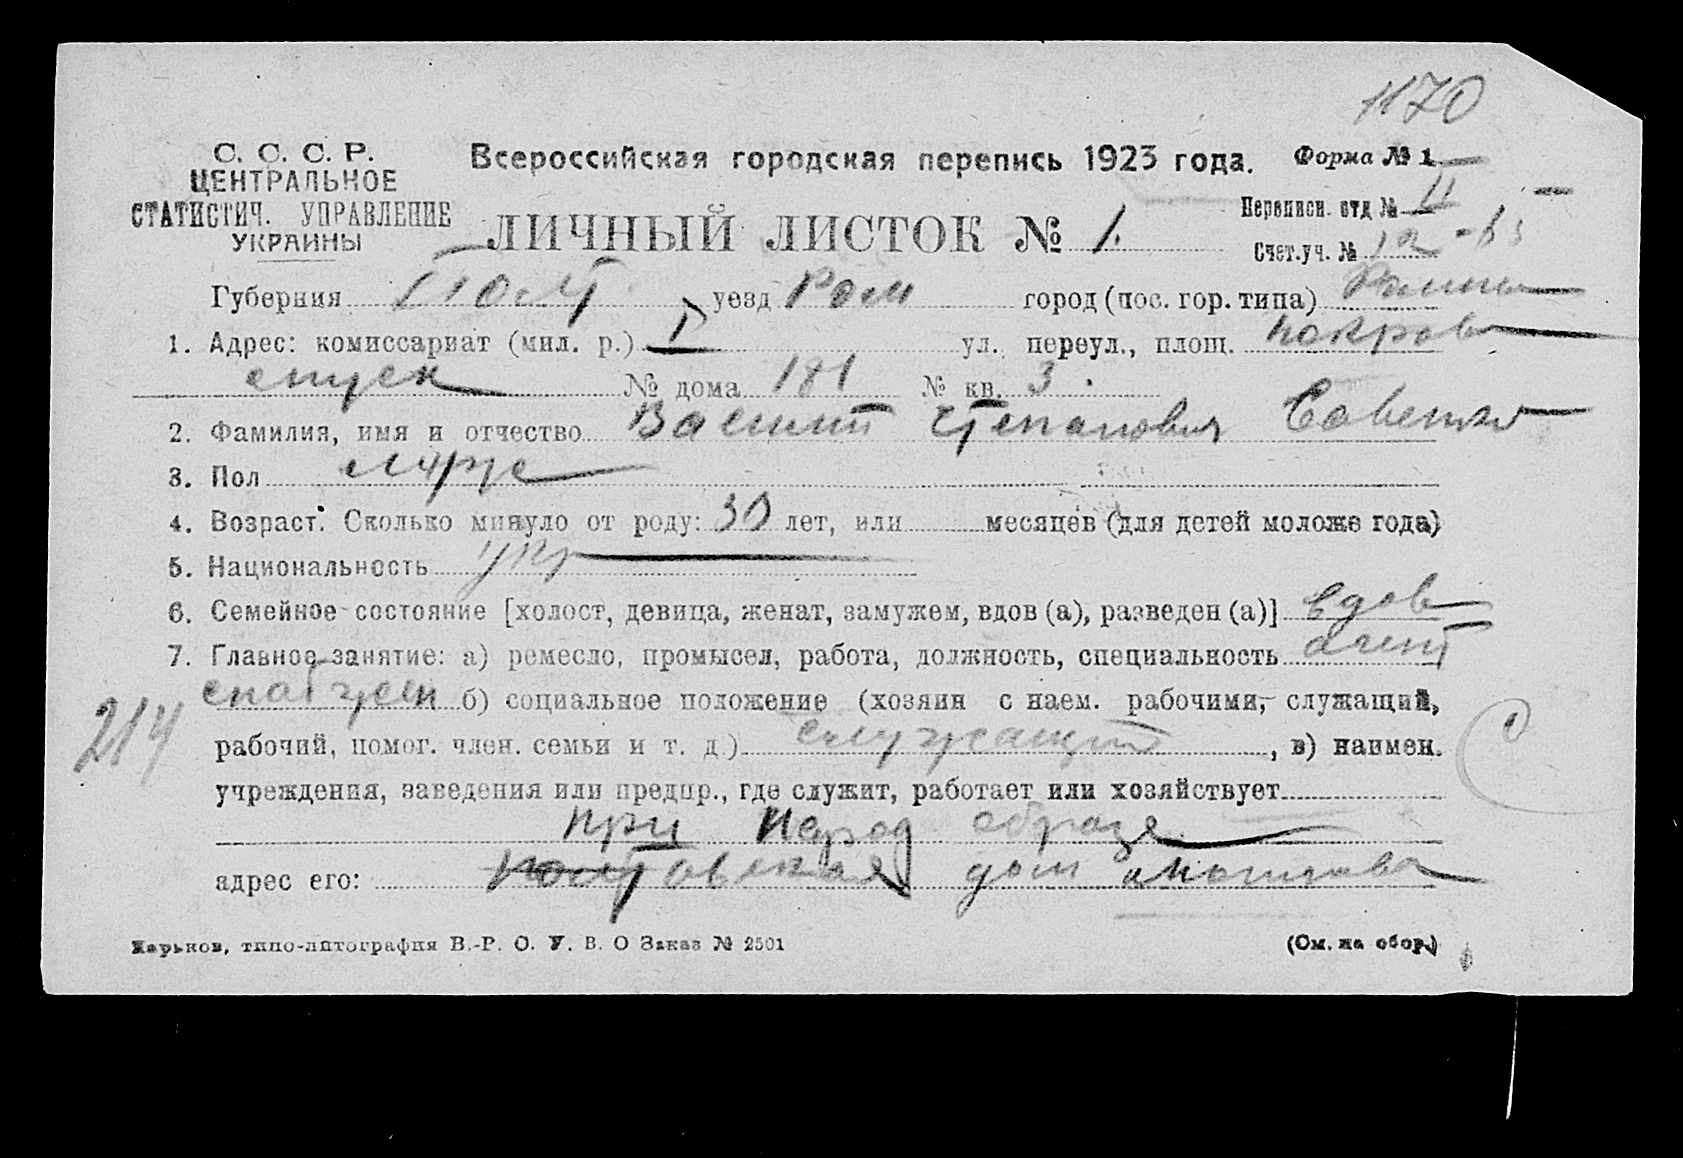 1170
С. С. С. Р.
ЦЕНТРАЛЬНОЕ
СТАТИСТИЧ. УПРАВЛЕНИЕ
УКРАИНЫ
Всероссийская городская перепись 1923 года. Форма № 1
ЛИЧНЫЙ ЛИСТОК № 1.
Переписн. отд № II
Счет.уч. № 12
Губерния Полт. уезд Ром город (пос. гор. типа) Ромны
1. Адрес: комиссариат (мил. р.) I ул., переул., площ. покров
спуск № дома 181 № кв. 3.
2. Фамилия, имя и отчество Василий Степанович
3. Пол муж
4. Возраст. Сколько минуло от роду: 30 лет, или месяцев (для детей моложе года)
5. Национальность укр
6. Семейное состояние [холост, девица, женат, замужем, вдов (а), разведен (а)] вдов
7. Главное занятие: а) ремесло, промысел, работа, должность, специальность агент
214
б) социальное положение (хозяин с наем. рабочими, служащий,
рабочий, помог. член. семьи и т. д.) служащий, в) наимен.
учреждения, заведения или предпр., где служит, работает или хозяйствует
при Народ образ
адрес его: дом
Харьков, типо-литография В.-Р. О. У. В. О Заказ № 2501
(См. на обор.)